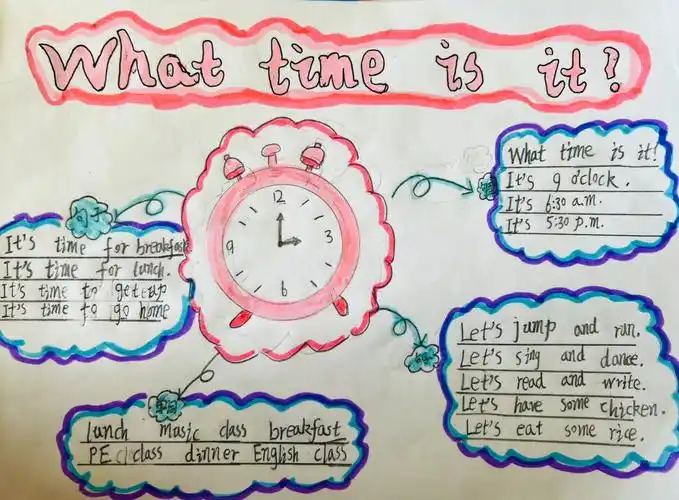 What time is it?
What time is it!
It's 9 o'clock.
It's 6:30 a.m.
It's 5:30 p.m.
12
3
6
9
句子
It's time for breakfast
It's time for lunch.
It's time to get up
It's time to go home
Let's jump and run.
Let's sing and dance.
Let's read and write.
Let's have some chicken.
Let's eat some rice.
lunch music class breakfast
PE class dinner English class